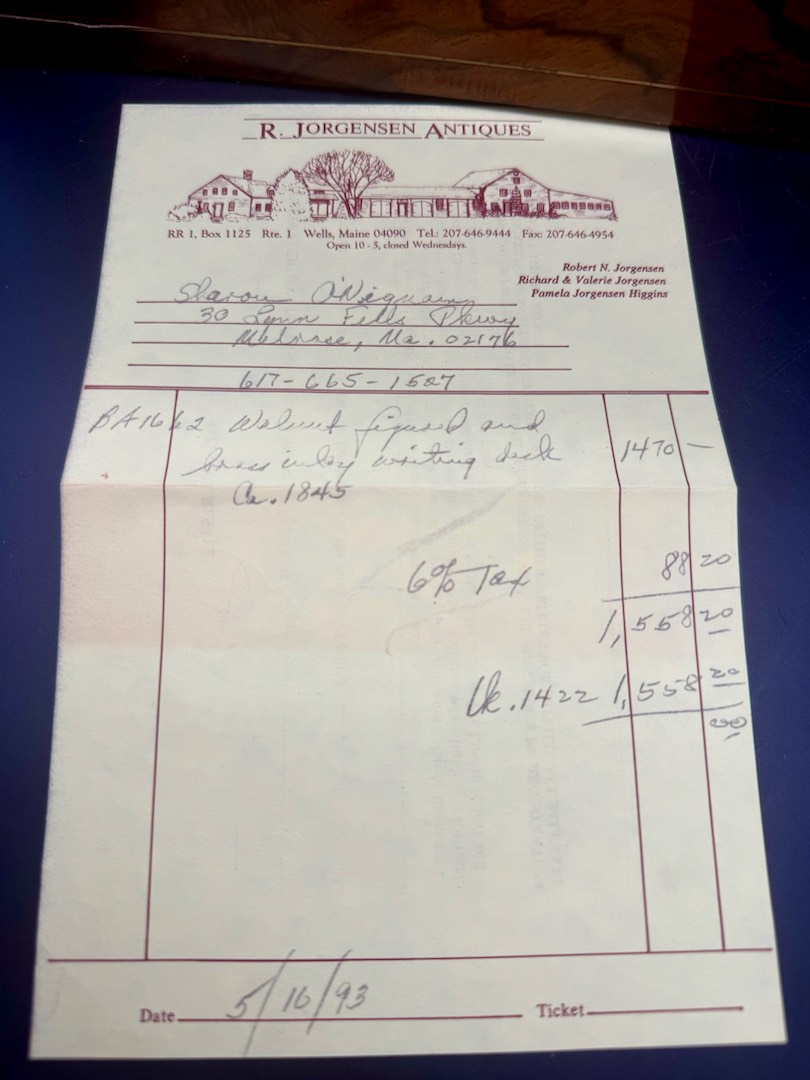 R. JORGENSEN ANTIQUES
RR 1, Box 1125 Rte. 1 Wells, Maine 04090 Tel.: 207-646-9444 Fax: 207-646-4954
Open 10 - 5, closed Wednesdays.
Robert N. Jorgensen
Richard & Valerie Jorgensen
Pamela Jorgensen Higgins
Sharon
30 Lynn Fells Pkwy
Melrose, Ma. 02176
617-665-1587
BA1662 Walnut figured and
brass inlay writing desk 1470 —
Ca. 1845
6% Tax 88 20
1,558 20
Ck. 1422 1,558 20
00
Date 5/16/93 Ticket